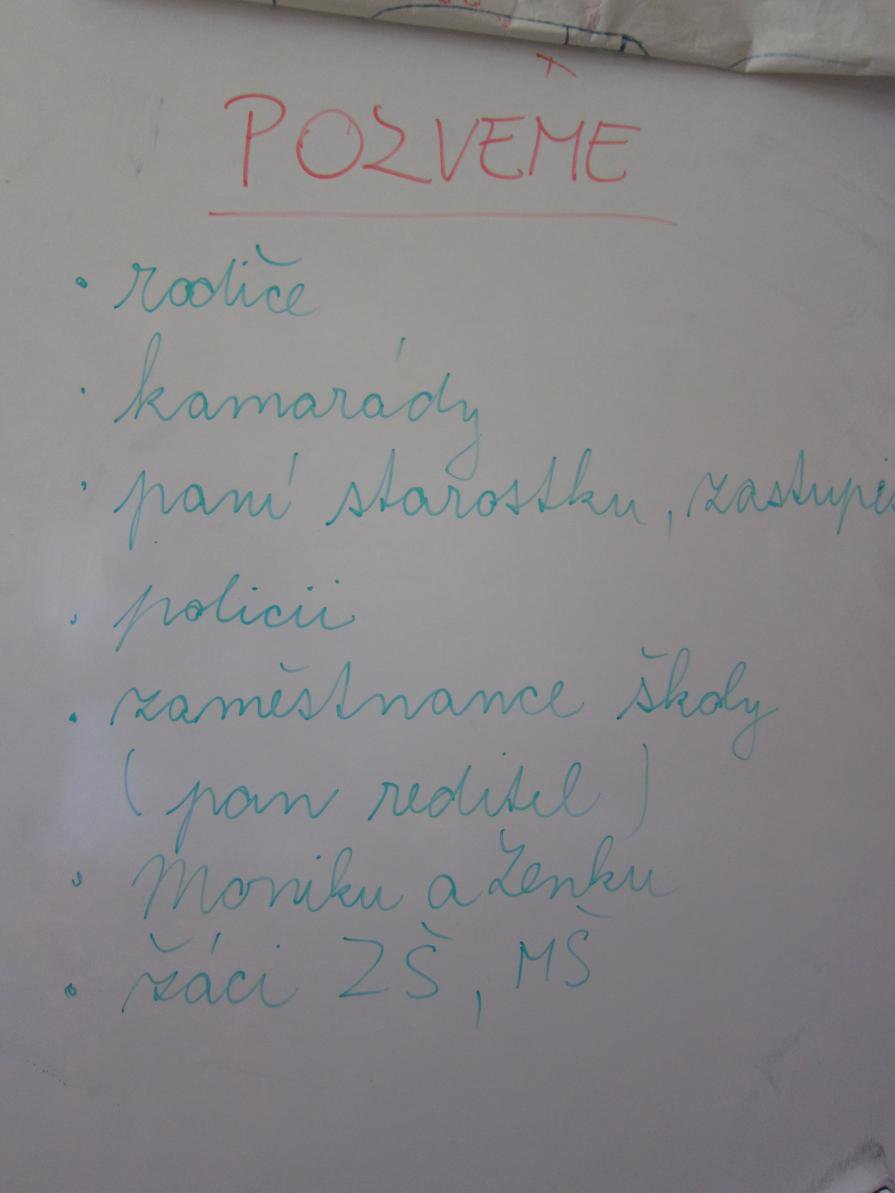 POZVEME
• rodiče
• kamarády
• paní starostku,
• policii
• zaměstnance školy
(pan reditel)
• Moniku a Lenku
• žáci ZŠ, MŠ